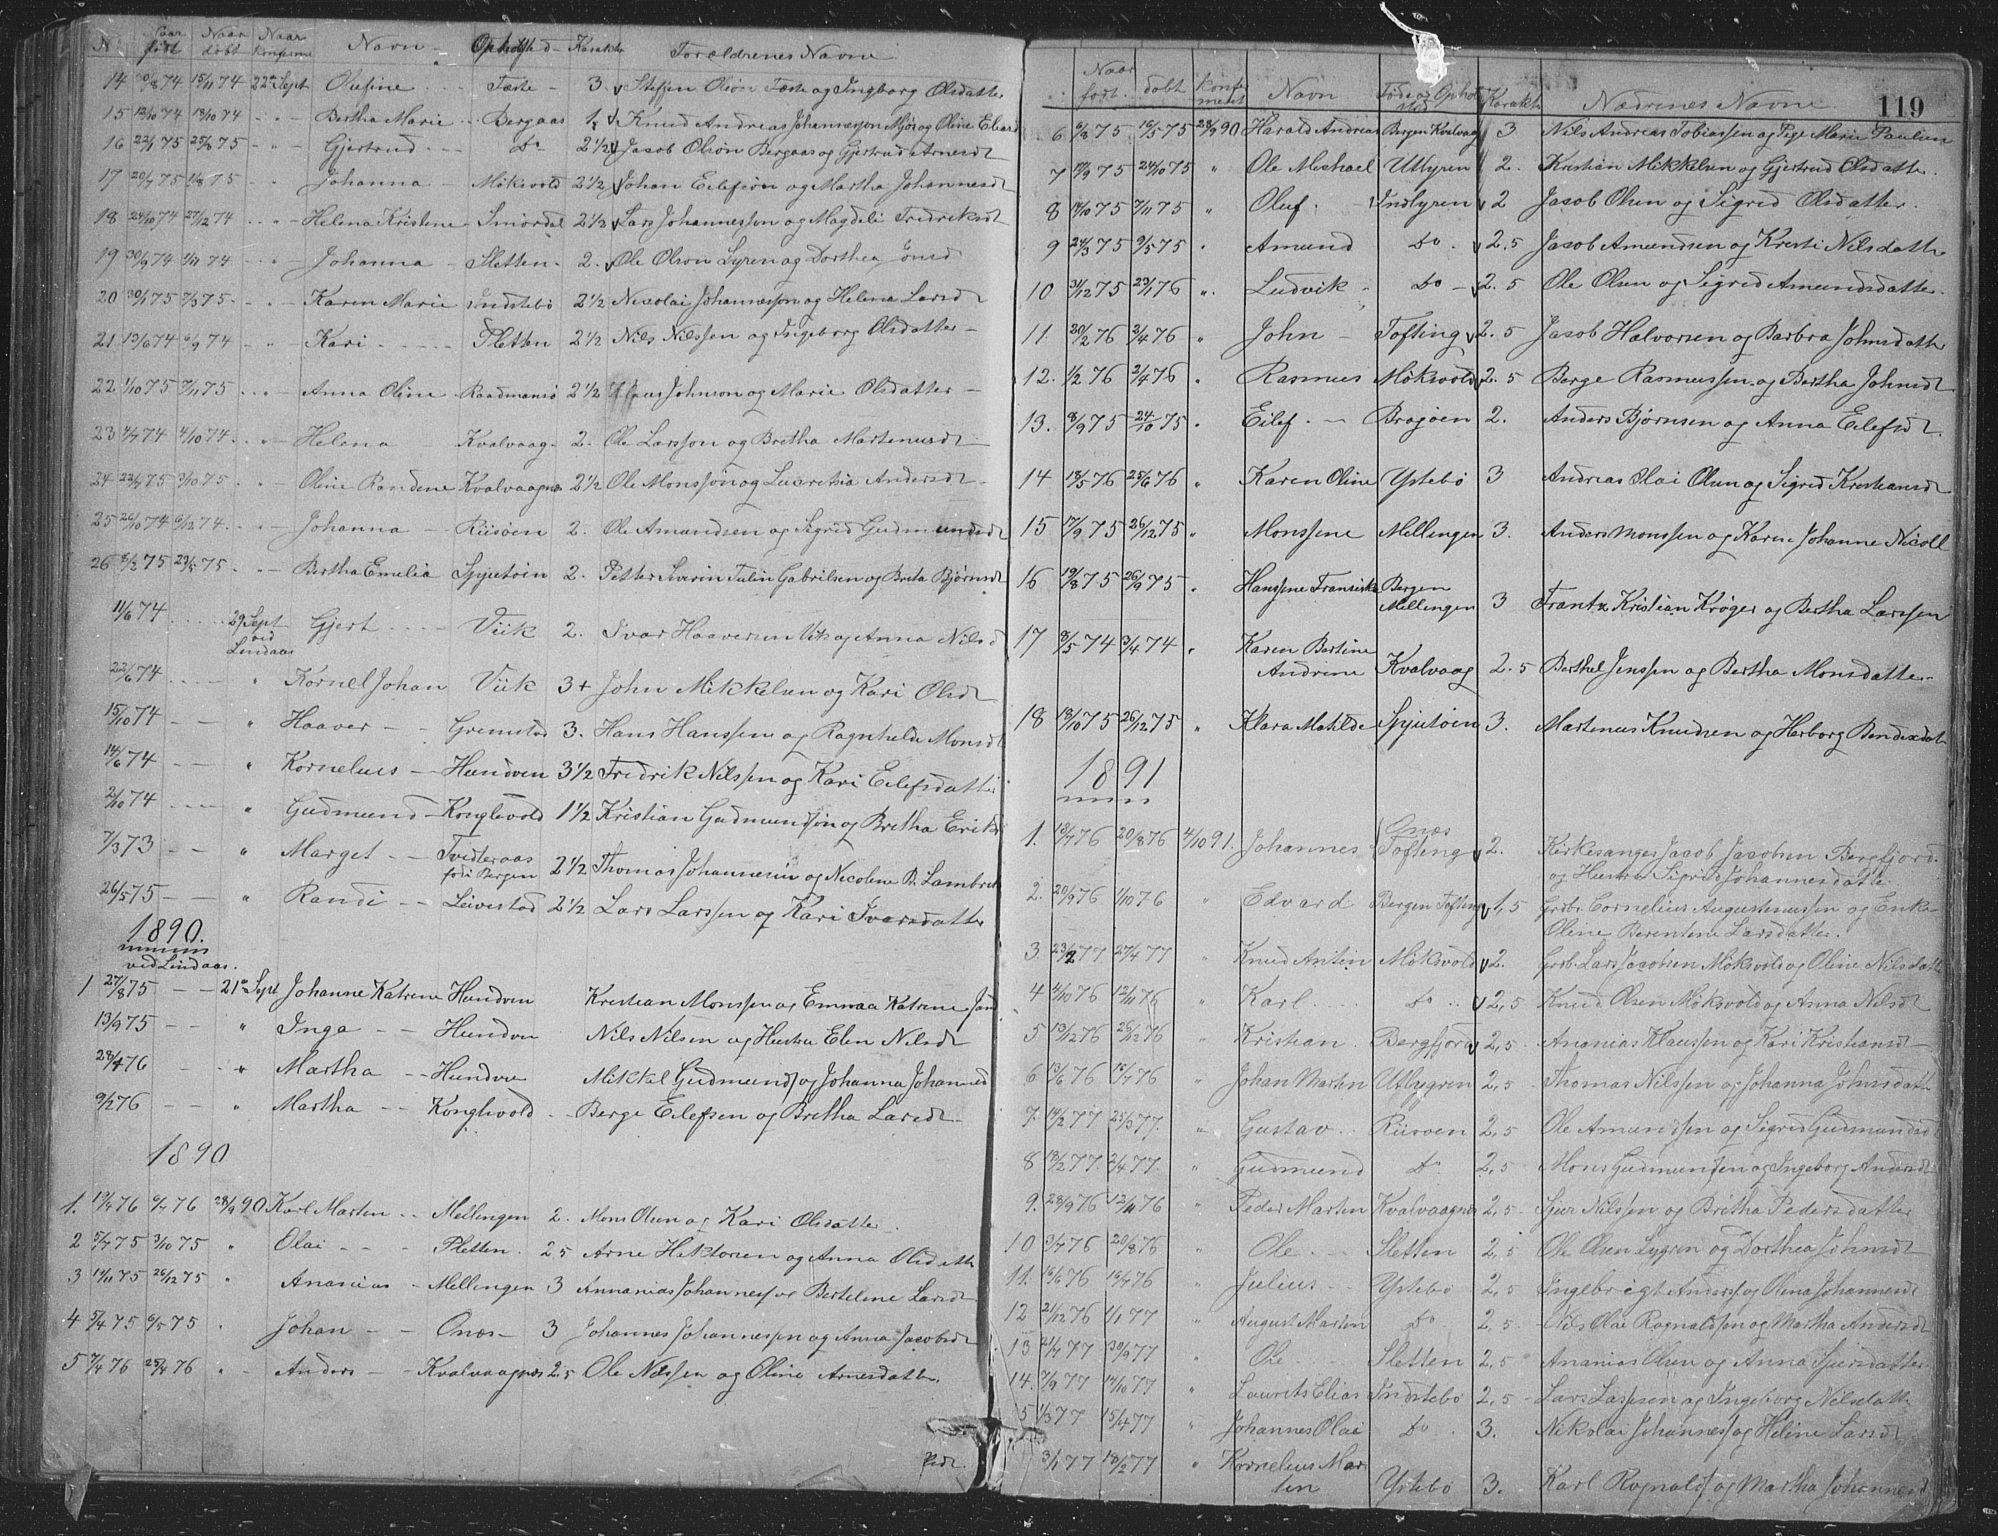 N. Naar født Naar døbt Naar konfirme Navn Opholdssted Karakter Forældrenes Navne
14 30/8 74 15/11 74 22de Sept Olufine Fæste 3 Steffen Olsøn Fæste og Ingborg Olsdatter
15 12/10 74 18/10 74 " " Bertha Marie Bergaas Knud Andreas Johannesson Mjøs og Oline
16 23/1 75 25/3 75 " " Gjertrud Do 2 1/2 Jacob Olsøn Bergaas og Gjertrud Arnesd
17 20/7 75 1/8 75 " " Johanna Møksvold 2 1/2 Johan Eilefsøn og Martha Johannesd
18 24/10 74 27/12 74 " " Helena Kristene Smørdal 2 1/2 Lars Johannessøn og Magdeli Fredriksd
19 30/9 74 1/11 74 " " Johanna Sletten 2. Ole Olsøn Lyren og Dorthea Jonsd
20 30/1 75 7/3 75 " " Karen Marie Indstebö 2 1/2 Nicolai Johannessøn og Helena Larsd
21 13/6 74 6/9 74 " " Kari Sletten 2 1/2 Nils Nilssen og Ingeborg Olsdatter
22 1/10 75 7/11 75 " " Anna Oline Raadmansø 2 1/2 Klaus Johnson og Marie Olsdatter
23 4/7 74 4/10 74 " " Helena Kvalvaag 2. Ole Larsson og Bretha Martenusd
24 23/7 75 3/10 75 " " Oline Randene Kvalvaagnes 2 1/2 Ole Monssøn og Lucretsia Andersd
25 26/10 74 6/12 74 " " Johanna Riisøen 2. Ole Amundsen og Sigrid Gudmundsd
26 8/2 75 29/3 75 " " Bertha Emelia Spjutøin 2. Petter Severin Tulin Gabrilsen og Breta Bjørnsd
11/6 74 29 Sept ved Lindaas Gjert Viik 2. Ivar Haaversen Vik og Anna Nilsd
22/6 74 " Kornel Johan Viik 3+ John Mikkelsen og Kari Olsd
15/10 74 " Haaver Gremstad 3. Hans Hanssen og Ragnhilde Monsd
14/6 74 " Kornelius Hundven 3 1/2 Fredrik Nilssen og Kari Eilefsdatter
2/10 74 " Gudmund Konglevold 1 1/2 Kristian Gudmundsøn og Bretha Eriks
7/3 73 " Marget Tvedteraas født Bergen 2 1/2 Thomas Johannesen og Nicolene B. Lambret
26/5 75 " Randi Leivestad 2 1/2 Lars Larssen og Kari Ivarsdatter
1890.
ved Lindaas.
1 27/8 75 21de Sept Johanne Katrene Hundven Kristian Monssen og Emmaa Katrene
13/9 75 " Inga Hundven Nils Nilsen og Hustru Elen Nilsd
28/4 76 " Martha Hundven Mikkel Gudmunds og Johanna Johannesd
9/2 76 " Martha Konglevold Berge Eilefsen og Bretha Larsd
1890
1. 19/4 76 9/7 76 28/9 90 Karl Marten Mellingen 2. Mons Olsen og Kari Olsdatter
2 5/7 75 3/10 75 " Olai Sletten 2 5 Arne Hektorsen og Anna Olsdatter
3 19/11 75 26/12 75 " Ananias Mellingen 3 Annanias Johannessen Bertelene Larsd
4 5/4 75 6/5 75 " Johan Onæs 3 Johannes Johannessen og Anna Jacobsd
5 7/4 76 25/4 76 " Anders Kvalvaagnes 2 5 Ole Nilssen og Oline Arnesdatter
119
Naar født døbt konfirmert Navn Føde og Opholdssted Karakter Forældrenes Navne
6 6/3 75 16/5 75 28/9 90 Harald Andreas Bergen Kvalvaag 3 Nils Andreas Tobiassen og Marie Paulsen
7 12/9 75 24/10 75 " Ole Mechael Utlyren 2. Kristian Mikkelsen og Gjertrud Olsdatter
8 14/10 75 7/11 75 " Oluf Indlyren 2 Jacob Olsen og Sigrid Olsdatter
9 24/3 75 9/5 75 " Amund Do 2.5 Jacob Amundsen og Kristi Nilsdatter
10 31/12 75 23/1 76 " Ludvik Do 2.5 Ole Olsen og Sigrid Amundsdatter
11. 20/2 76 2/4 76 " John Tofting 2.5 Jacob Halvorsen og Barbra Johnsdatter
12. 1/2 76 2/4 76 " Rasmus Møksvold 2.5 Berge Rasmussen og Bertha Johnsd
13. 8/9 75 24/10 75 " Eilef Bragøen 2. Anders Bjørnsen og Anna Eilefsd
14 18/5 76 25/6 76 " Karen Oline Ystebø 3 Andreas Olai Olsen og Sigrid Kristiansd
15 17/9 75 26/12 75 " Monssene Mellingen 3. Anders Monssen og Karen Johanne Nicoll
16 19/8 75 26/9 75 " Hanssene Fransiska Bergen Mellingen 3 Frantz Kristian Krøger og Bertha Larssen
17 8/5 74 3/4 74 " Karen Bertine Andrine Kvalvaag 2.5 Berthel Jenssen og Bertha Monsdatter
18 18/10 75 26/12 75 " Klara Matilde Spjutøen 3. Martenus Knudsen og Herborg Bendixdat
1891
1. 13/7 76 20/8 76 4/10 91. Johannes Onæs Tofting 2. Kirkesanger Jacob Jacobsen Bergfjord og Hustru Sigrid Johannesdatter
2. 20/9 76 1/10 76 " Edvard Bergen Tofting 1,5 Grdbr. Cornelius Augustinussen og Enke Oline Berentine Larsdatter.
3. 23/2 77 27/4 77 " Knud Antin Møksvold 2. Grdb. Lars Jacobsen Møksvold og Oline Nilsdatter
4 4/10 76 12/11 76 " Karl Do 2,5 Knud Olsen Møksvold og Anna Nilsd
5 13/12 76 26/12 76 " Kristian Bergfjord 2,5 Ananias Klaussen og Kari Kristiansd
6 13/6 76 15/7 76 " Johan Marten Utlygren 2,5 Thomas Nilssen og Johanna Johnsdatt
7. 14/2 77 25/3 77. " Gustav Riisøen 2,5 Ole Amundsen og Sigrid Gudmundsd
8 18/2 77. 2/4 77. " Gudmund Do 2,5 Mons Gudmunsen og Ingeborg Andersd
9. 28/9 76 12/11 76 " Peder Marten Kvalvaagnes 2,5 Sjur Nilssen og Britha Pedersdatter
10 3/7 76 20/8 76 " Ole Sletten 2,5 Ole Olsen Lygren og Dorthea Johnsd
11. 16/6 76 16/7 76 " Julius Ystebø 2,5 Ingebrigt Anderss og Olena Johannesd
12 21/12 76 1/1 77 " August Marten Do 2,5 Nils Olai Ragnaldsen og Martha Andersd
13 21/7 77 30/9 77 " Ole Sletten 2,5 Ananias Olsen og Anna Sjursdatter
14. 7/9 77 14/10 77 " Laurits Elias Indstebø 2,5 Lars Larssen og Ingeborg Nilsdatt
5 1/3 77 15/4 77 " Johannes Olai Do 3. Nikolai Johanness og Helene Larsd
3/1 77 10/2 77 " Kornelius Marten Ystebø 3. Karl Ragnalds og Martha Johannesd